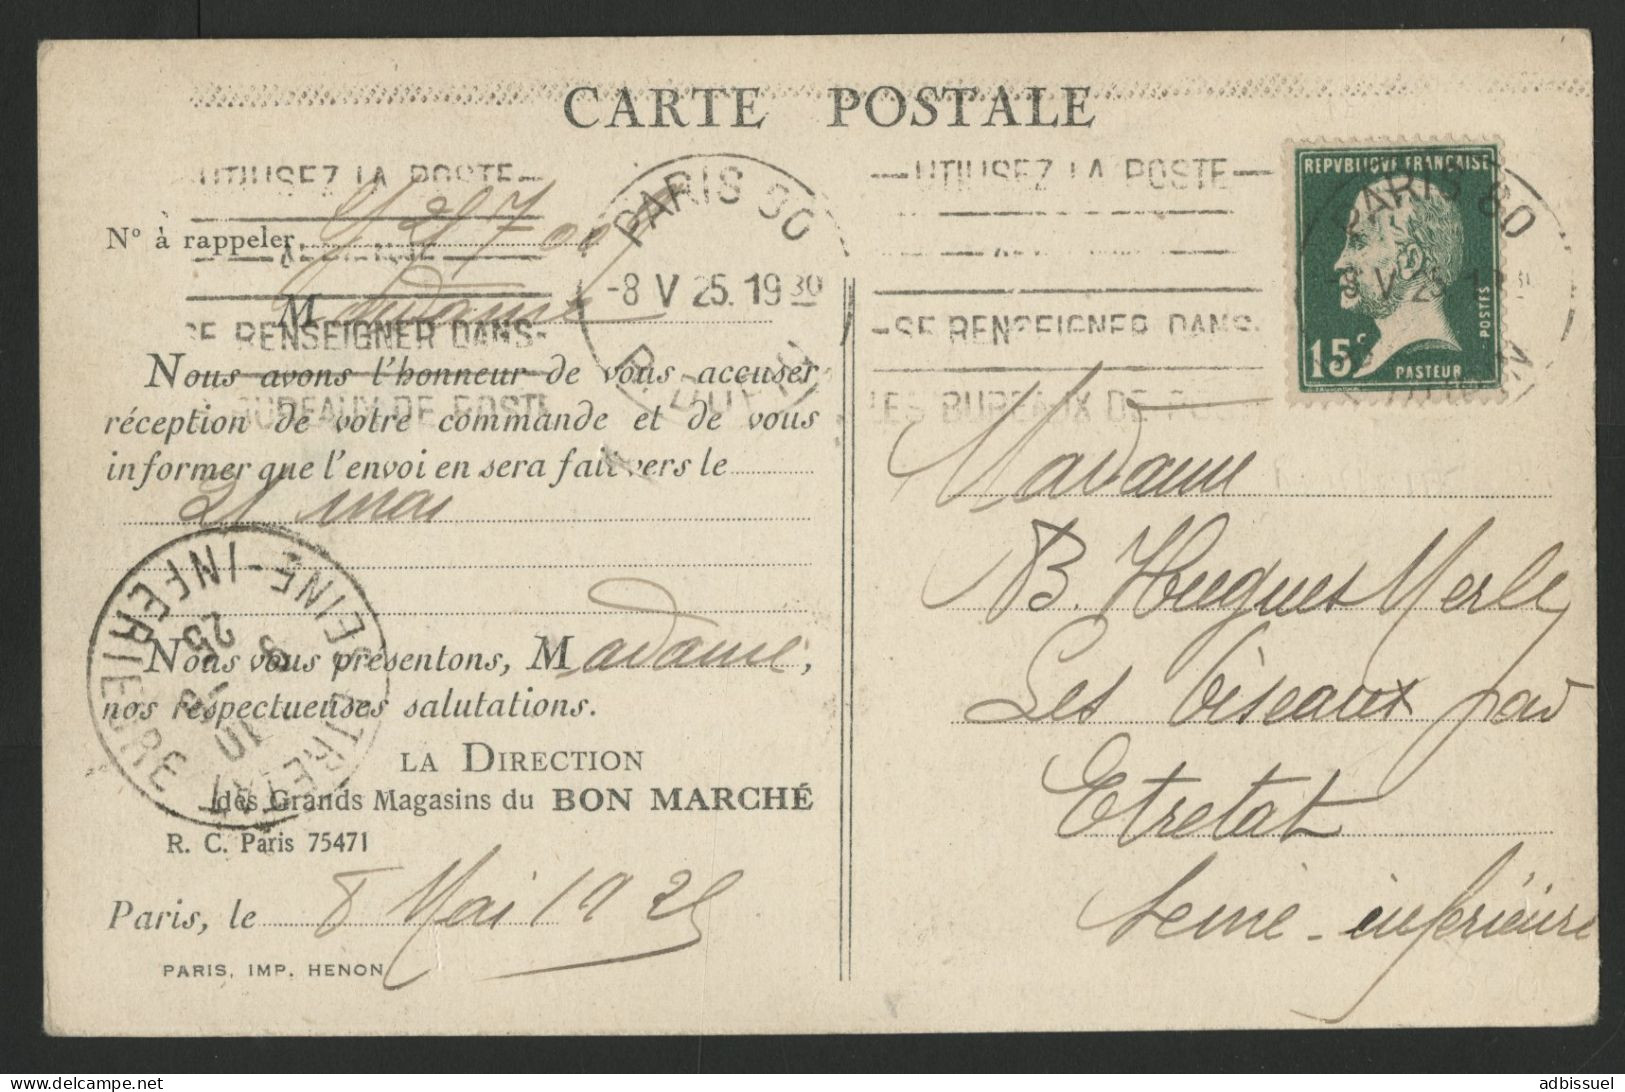 CARTE POSTALE
UTILISEZ LA POSTE
SE RENSEIGNER DANS
BUREAUX DE POSTE
PARIS
-8 V 25. 19 30
UTILISEZ LA POSTE
SE RENSEIGNER DANS
LES BUREAUX DE
PARIS 80
REPVBLIQVE FRANÇAISE
POSTES
15c
PASTEUR
N° à rappeler
Madame
Nous avons l'honneur de vous accuser
réception de votre commande et de vous
informer que l'envoi en sera fait vers le
21 mai
Nous vous présentons, Madame,
nos respectueuses salutations.
LA DIRECTION
des Grands Magasins du BON MARCHÉ
R. C. Paris 75471
Paris, le 8 Mai 1925
PARIS, IMP. HENON
ETRETAT
SEINE-INFERIEURE
Madame
B. Hugues Merle
Les Oiseaux par
Etretat
Seine-inférieure
adbissuel